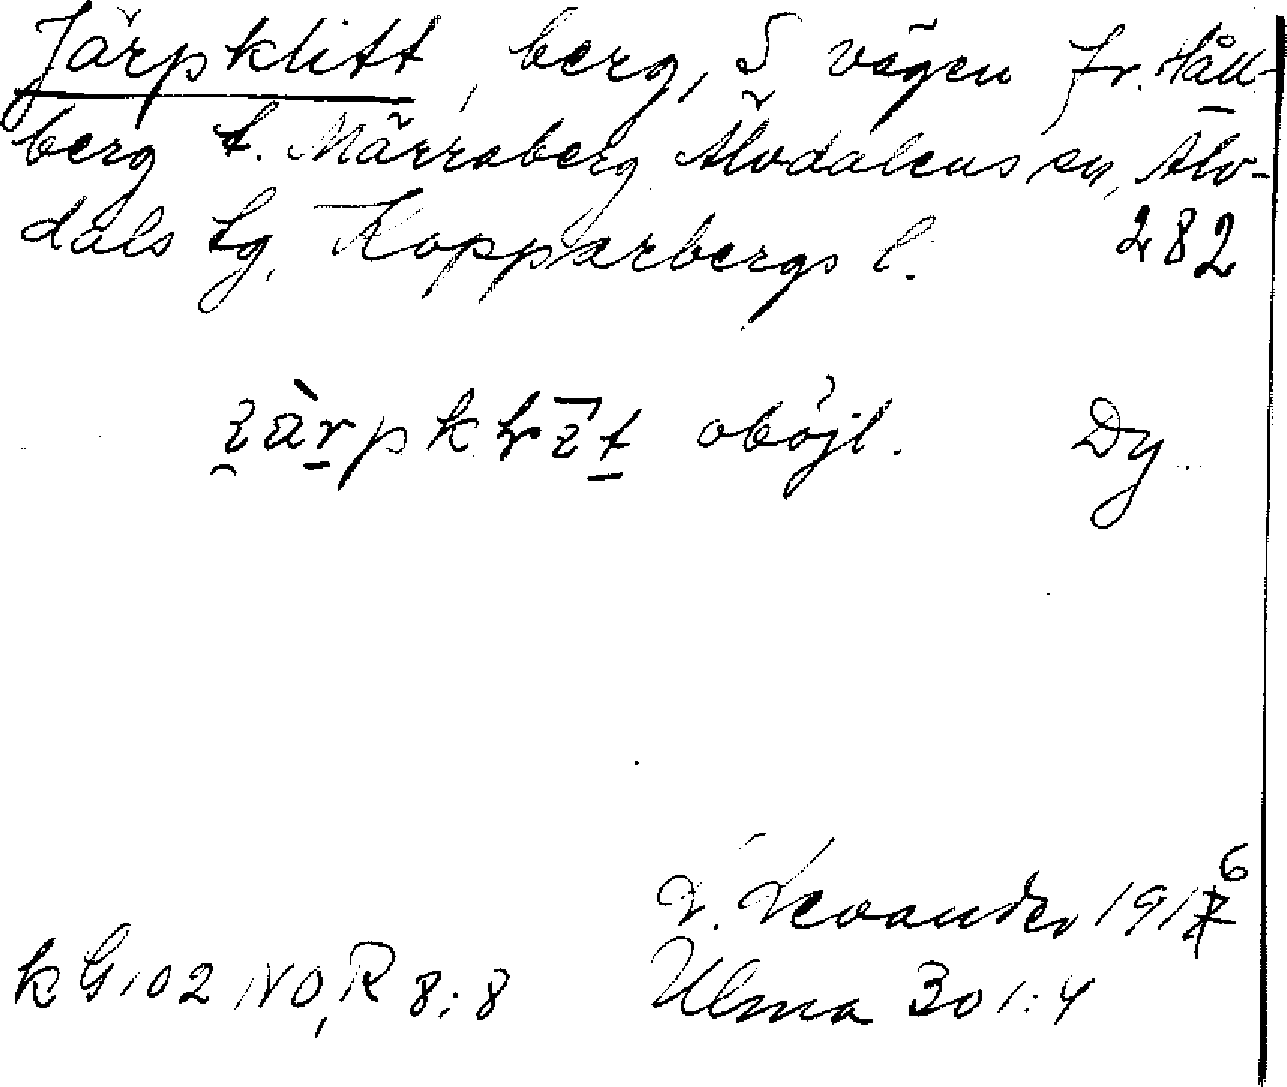 Järpklitt, berg, S vägen fr. Håll-
berg t. Märraberg Älvdalens sn, Älv-
dals tg, Kopparbergs l. 282
obojl. Dy
L. Levander 1916
k G 102 NO, R 8:8 Ulma 301:4